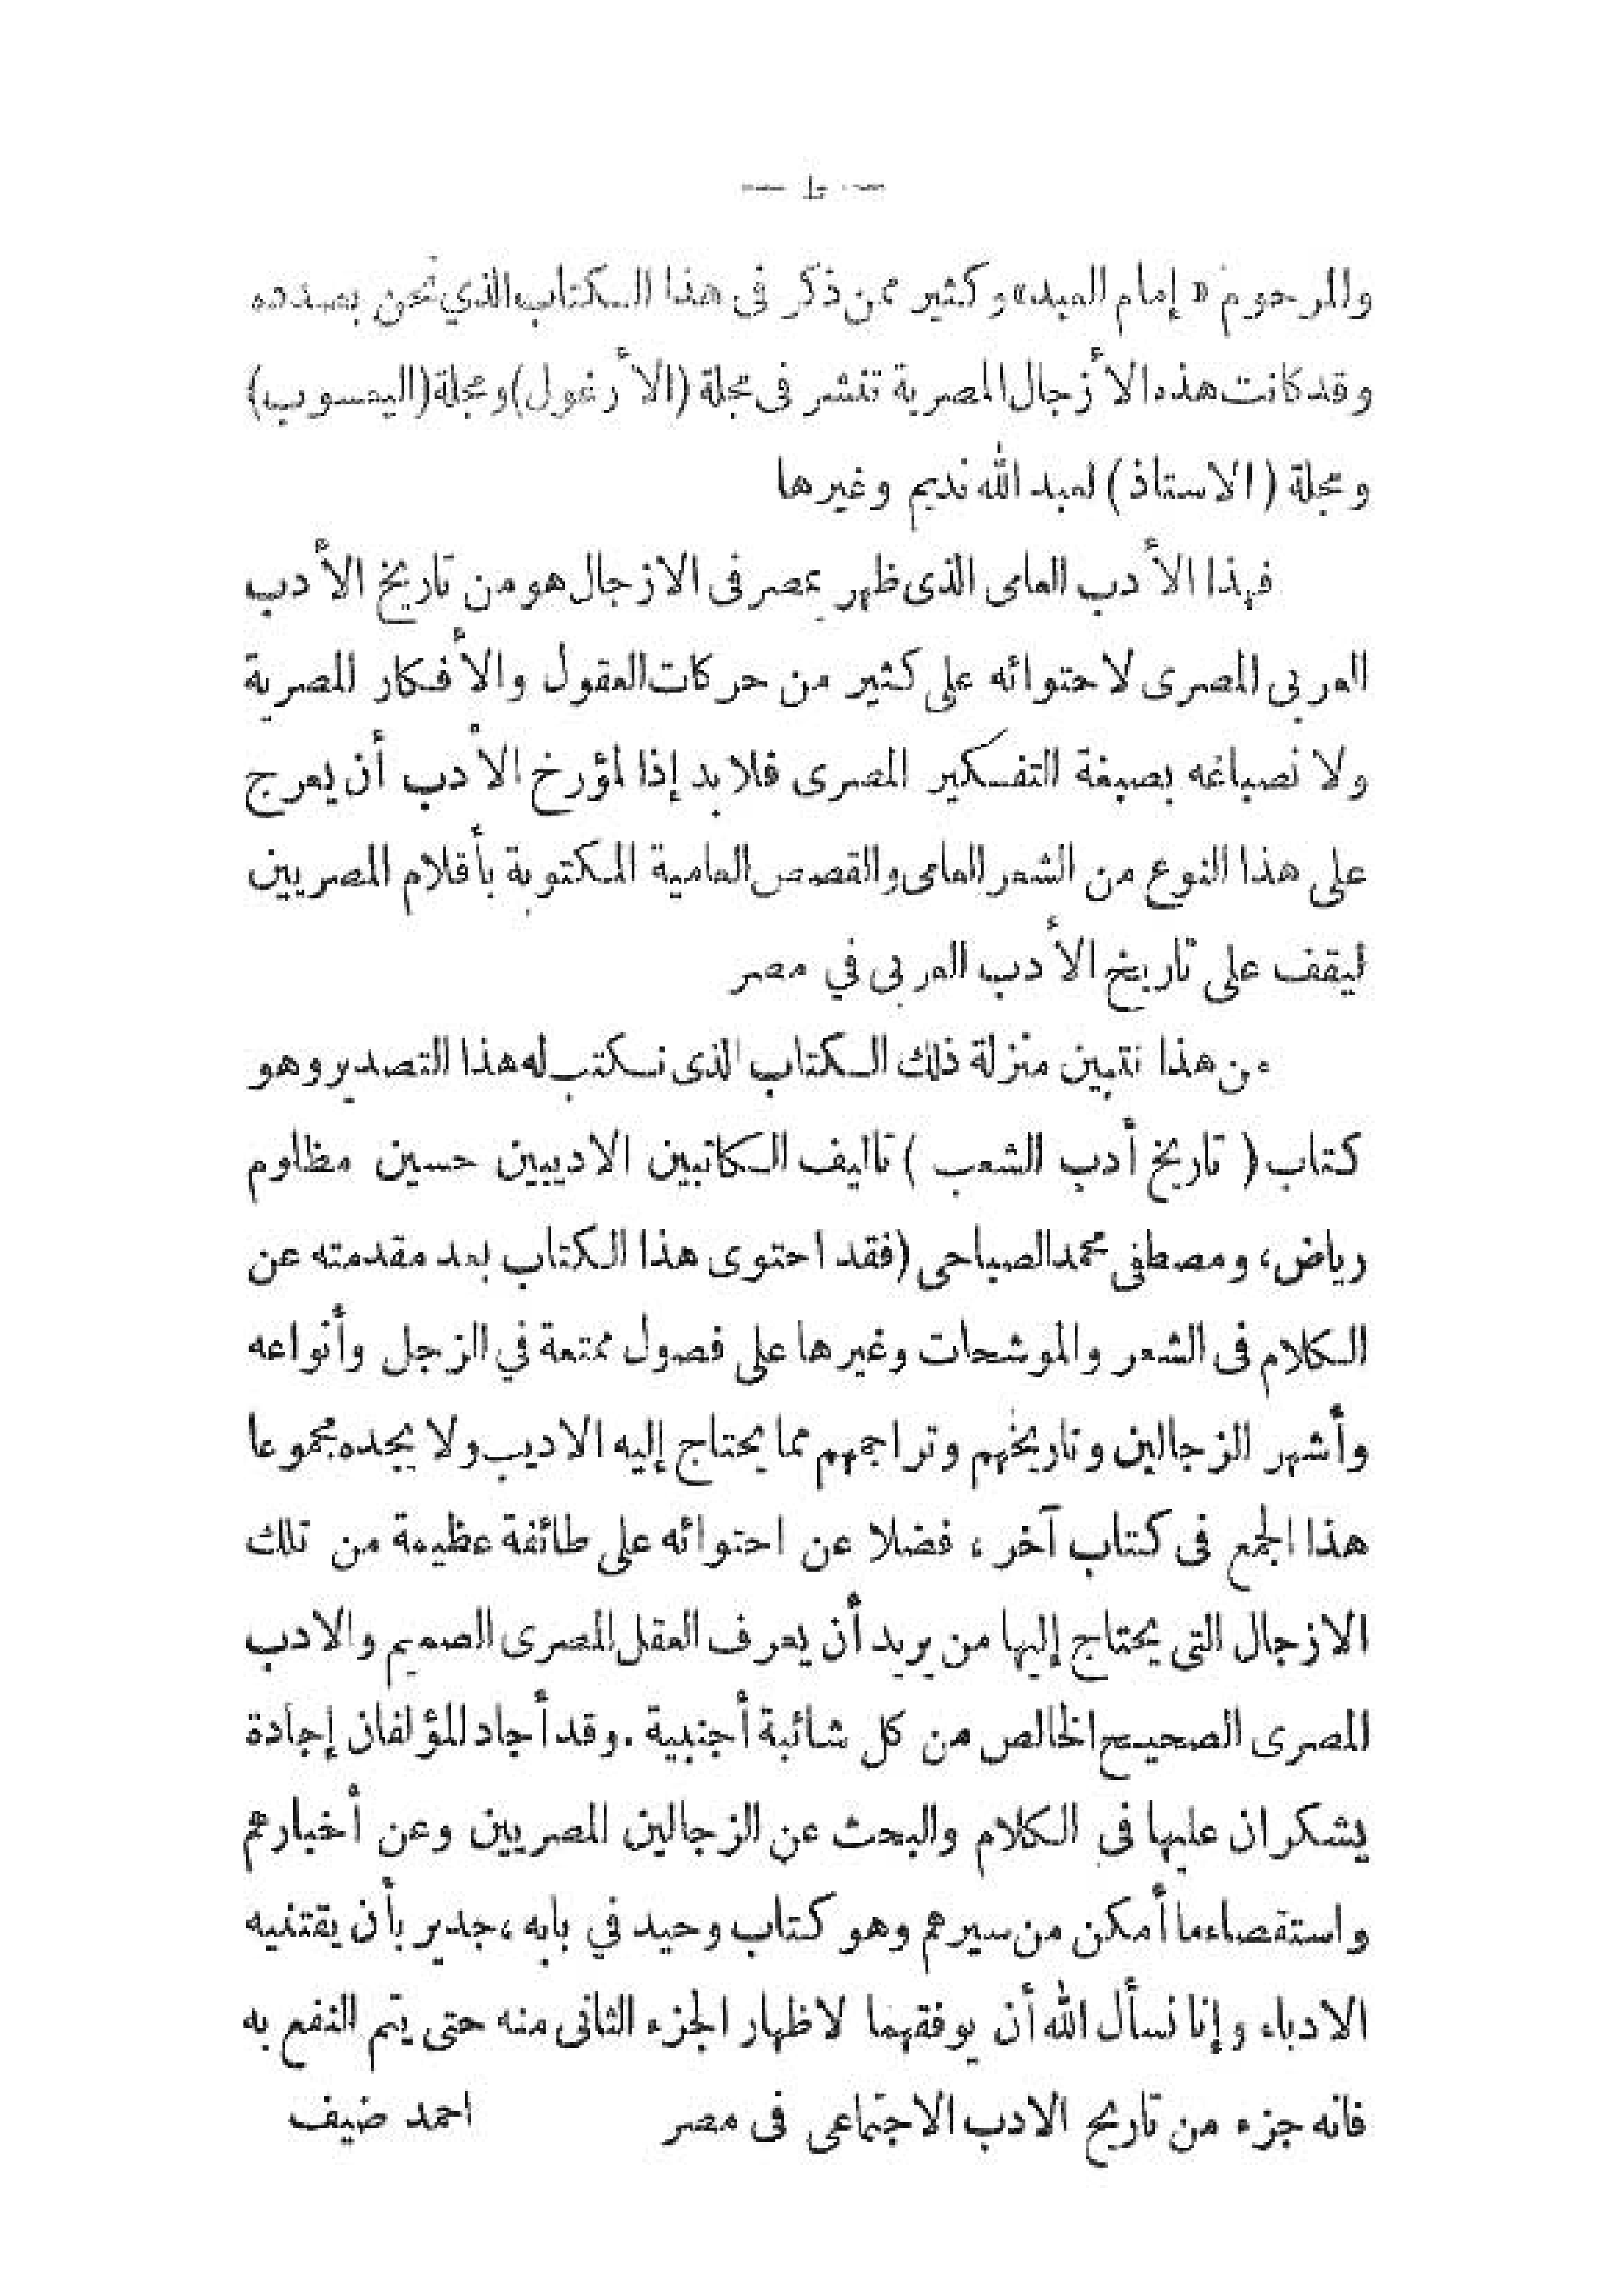 — ط —
والمرحوم « إمام العبد» وكثير ممن ذكر فى هذا الكتاب الذي نحن بصدده
وقد كانت هذه الأزجال المصرية تنشر فى مجلة (الأرغول) ومجلة (اليعسوب)
ومجلة ( الاستاذ ) لعبد الله نديم وغيرها
فهذا الأدب العامى الذى ظهر بمصر فى الازجال هو من تاريخ الأدب
العربى المصرى لاحتوائه على كثير من حركات العقول والأفكار المصرية
ولانصباغه بصبغة التفكير المصرى فلا بد إذا لمؤرخ الأدب أن يعرج
على هذا النوع من الشعر العامى والقصص العامية المكتوبة بأقلام المصريين
ليقف على تاريخ الأدب العربى في مصر
من هذا نتبين منزلة ذلك الكتاب الذى نكتب له هذا التصدير وهو
كتاب ( تاريخ أدب الشعب ) تأليف الكاتبين الاديبين حسين مظلوم
رياض، ومصطفى محمد الصباحى (فقد احتوى هذا الكتاب بعد مقدمته عن
الكلام فى الشعر والموشحات وغيرها على فصول ممتعة في الزجل وأنواعه
وأشهر الزجالين وتاريخهم وتراجمهم مما يحتاج إليه الاديب ولا يجده مجموعا
هذا الجمع فى كتاب آخر ، فضلا عن احتوائه على طائفة عظيمة من تلك
الازجال التى يحتاج إليها من يريد أن يعرف العقل المصرى الصميم والادب
المصرى الصحيح الخالص من كل شائبة أجنبية . وقد أجاد المؤلفان إجادة
يشكران عليها فى الكلام والبحث عن الزجالين المصريين وعن أخبارهم
واستقصاء ما أمكن من سيرهم وهو كتاب وحيد في بابه ، جدير بأن يقتنيه
الادباء وإنا نسأل الله أن يوفقهما لاظهار الجزء الثانى منه حتى يتم النفع به
فانه جزء من تاريخ الادب الاجتماعى فى مصر احمد ضيف